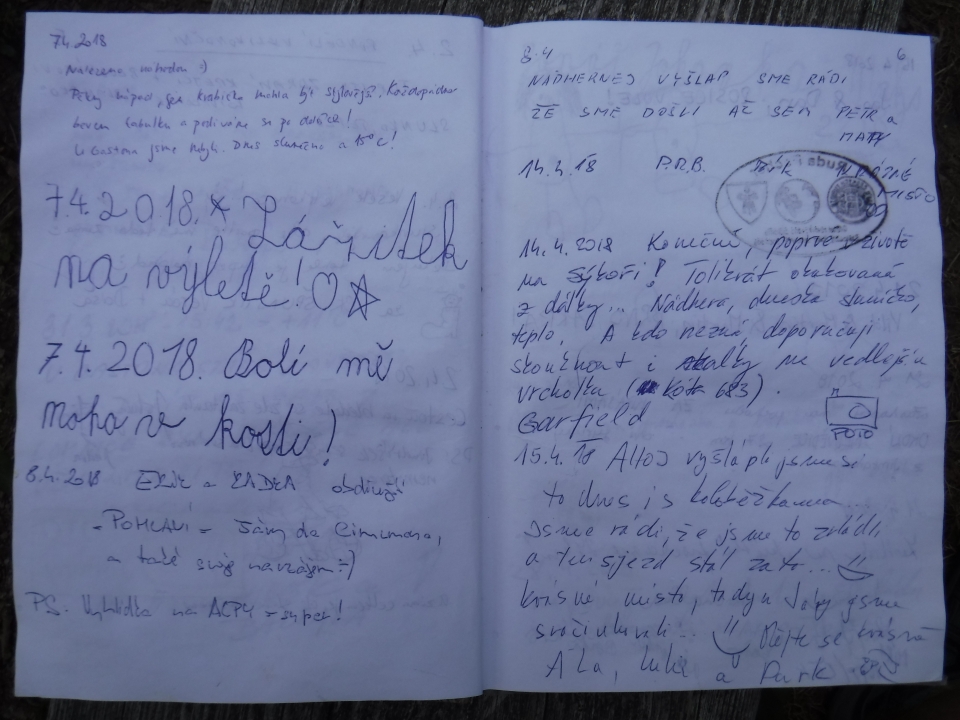 7.4.2018
Nalezeno v pohodě :)
Pěkný nápad, jen krabička mohla být stylovější. Každopádně
bereme tabulku a podíváme se po další!
U Gastona jsme byli. Dnes slunečno a 15°C!
7.4.2018. Zážitek
na výletě!
7.4.2018. Bolí mě
noha v kosti!
8.4.2018 a obdivují
- POHLAVÍ - Járy da Cimrmana,
a také svoje navzájem :-)
PS. Vyhlídka na ALPY - super!
8.4
NÁDHERNEJ VÝŠLAP SME RÁDI
ŽE SME DOŠLI AŽ SEM PETR a
MATY
14.4.18 P.R.B.
MÍSTO
14.4.2018 Konečně, poprvé v životě
na Sýkoři! Tolikrát
z dálky... Nádhera, dneska sluníčko,
teplo. A kdo nezná, doporučuji
i skalky na vedlejším
vrcholku (Kóta 683).
Garfield
FOTO
15.4.18 AHOJ vyšlapli jsme si
to dnes i s koloběžkama...
Jsme rádi, že jsme to zvládli
a ten sjezd stál za to...
krásné místo, tady jsme
Mějte se krásně
a